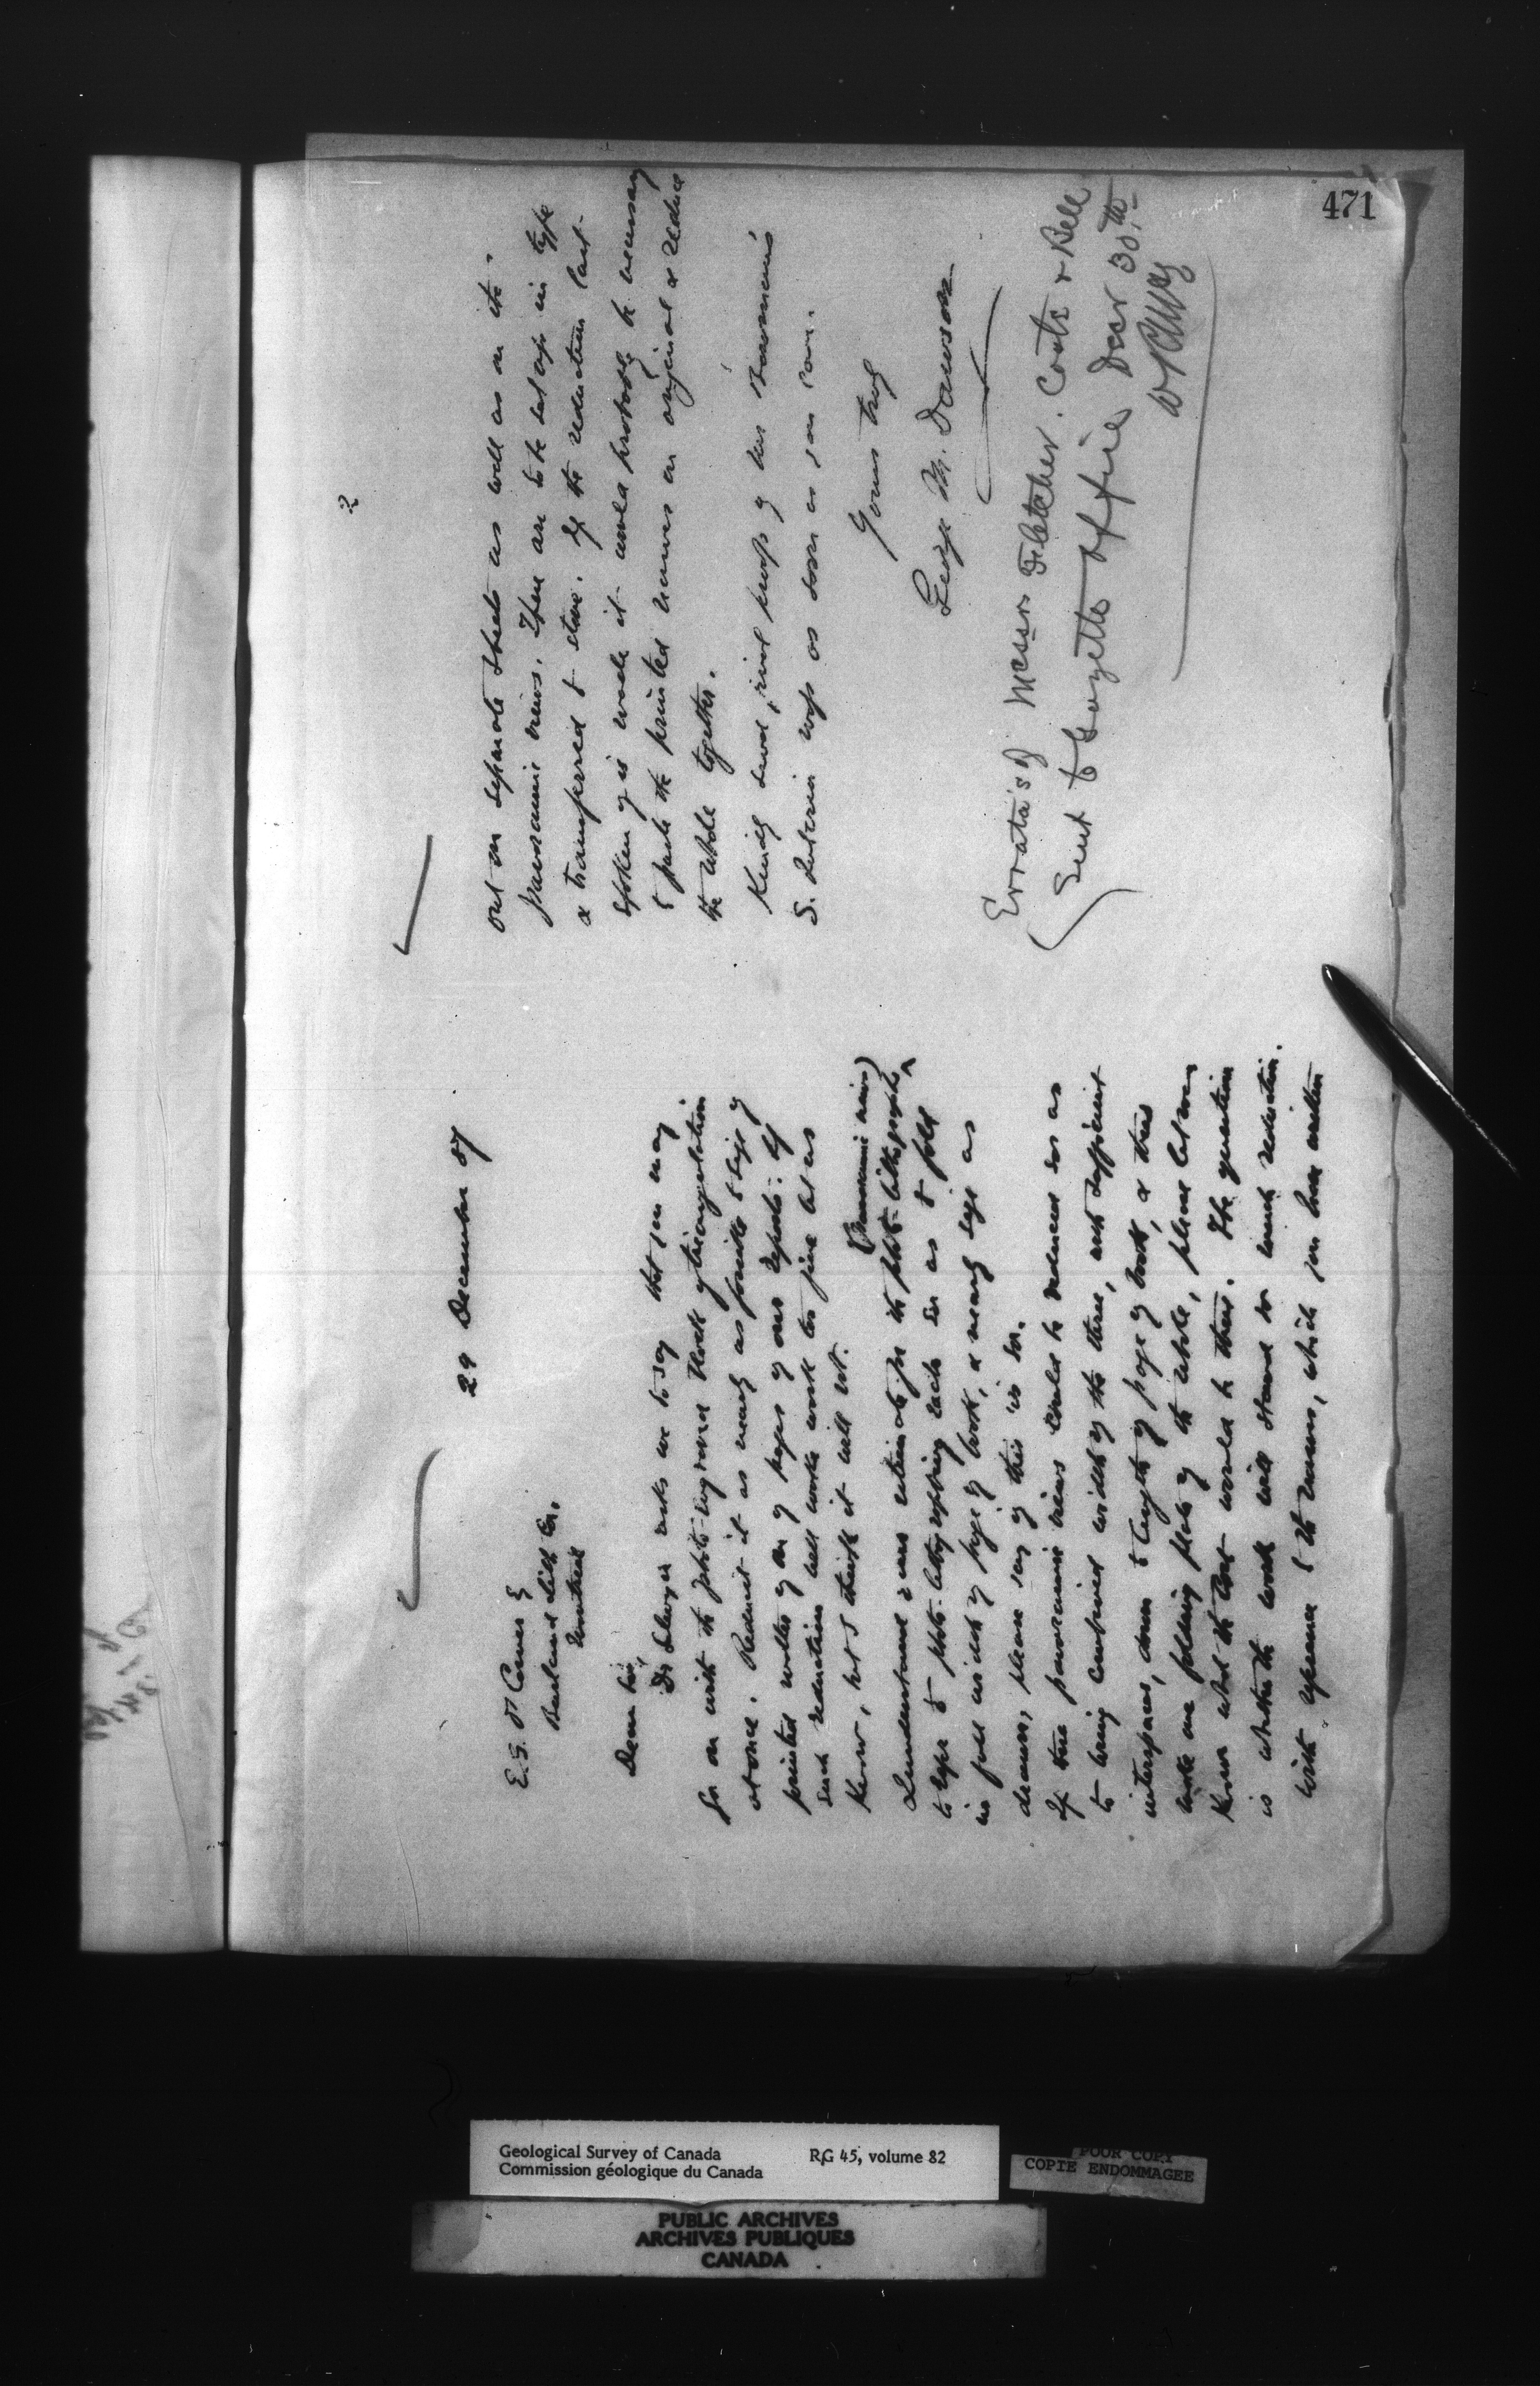 471
29 December 87
E. S. O'Connor Esq
Burland Lith Co.
Montreal
Dear Sir,
Dr Selwyn asks me to say that you may
go on with the photo-engraved block of triangulation
at once. Reduce it as nearly as possible to size of
printed matter of pages of our reports. If
such reduction will make work too fine let us
know, but I think it will not.
(Panoramic views)
I understand your estimate for the photo-lithographs
to refer to photo-lithographing each so as to fold
in full width of page of book, & nearly size as
drawn, please say if this is so.
If the panoramic views could be reduced so as
to bring combined width of the three, with sufficient
interspaces, down to length of page of book, & thus
make one folding plate of the whole, please let me
know what the cost would be then. The question
is whether the work will stand so much reduction.
With reference to the names, which you have written
2
out on separate sheets as well as on the
panoramic views. These are to be set up in type
& transferred to stone. If the reduction last
spoken of is made it would probably be necessary
to paste the printed names on original & reduce
the whole together.
Kindly send proof of Bowman's
S. Interior map as soon as you can.
Yours truly
George M. Dawson
Errata's of Messrs Fletcher. Coste & Bell
Sent to Gazette Office Decr 30th
Geological Survey of Canada RG 45, volume 82
Commission géologique du Canada
POOR COPY
COPIE ENDOMMAGEE
PUBLIC ARCHIVES
ARCHIVES PUBLIQUES
CANADA